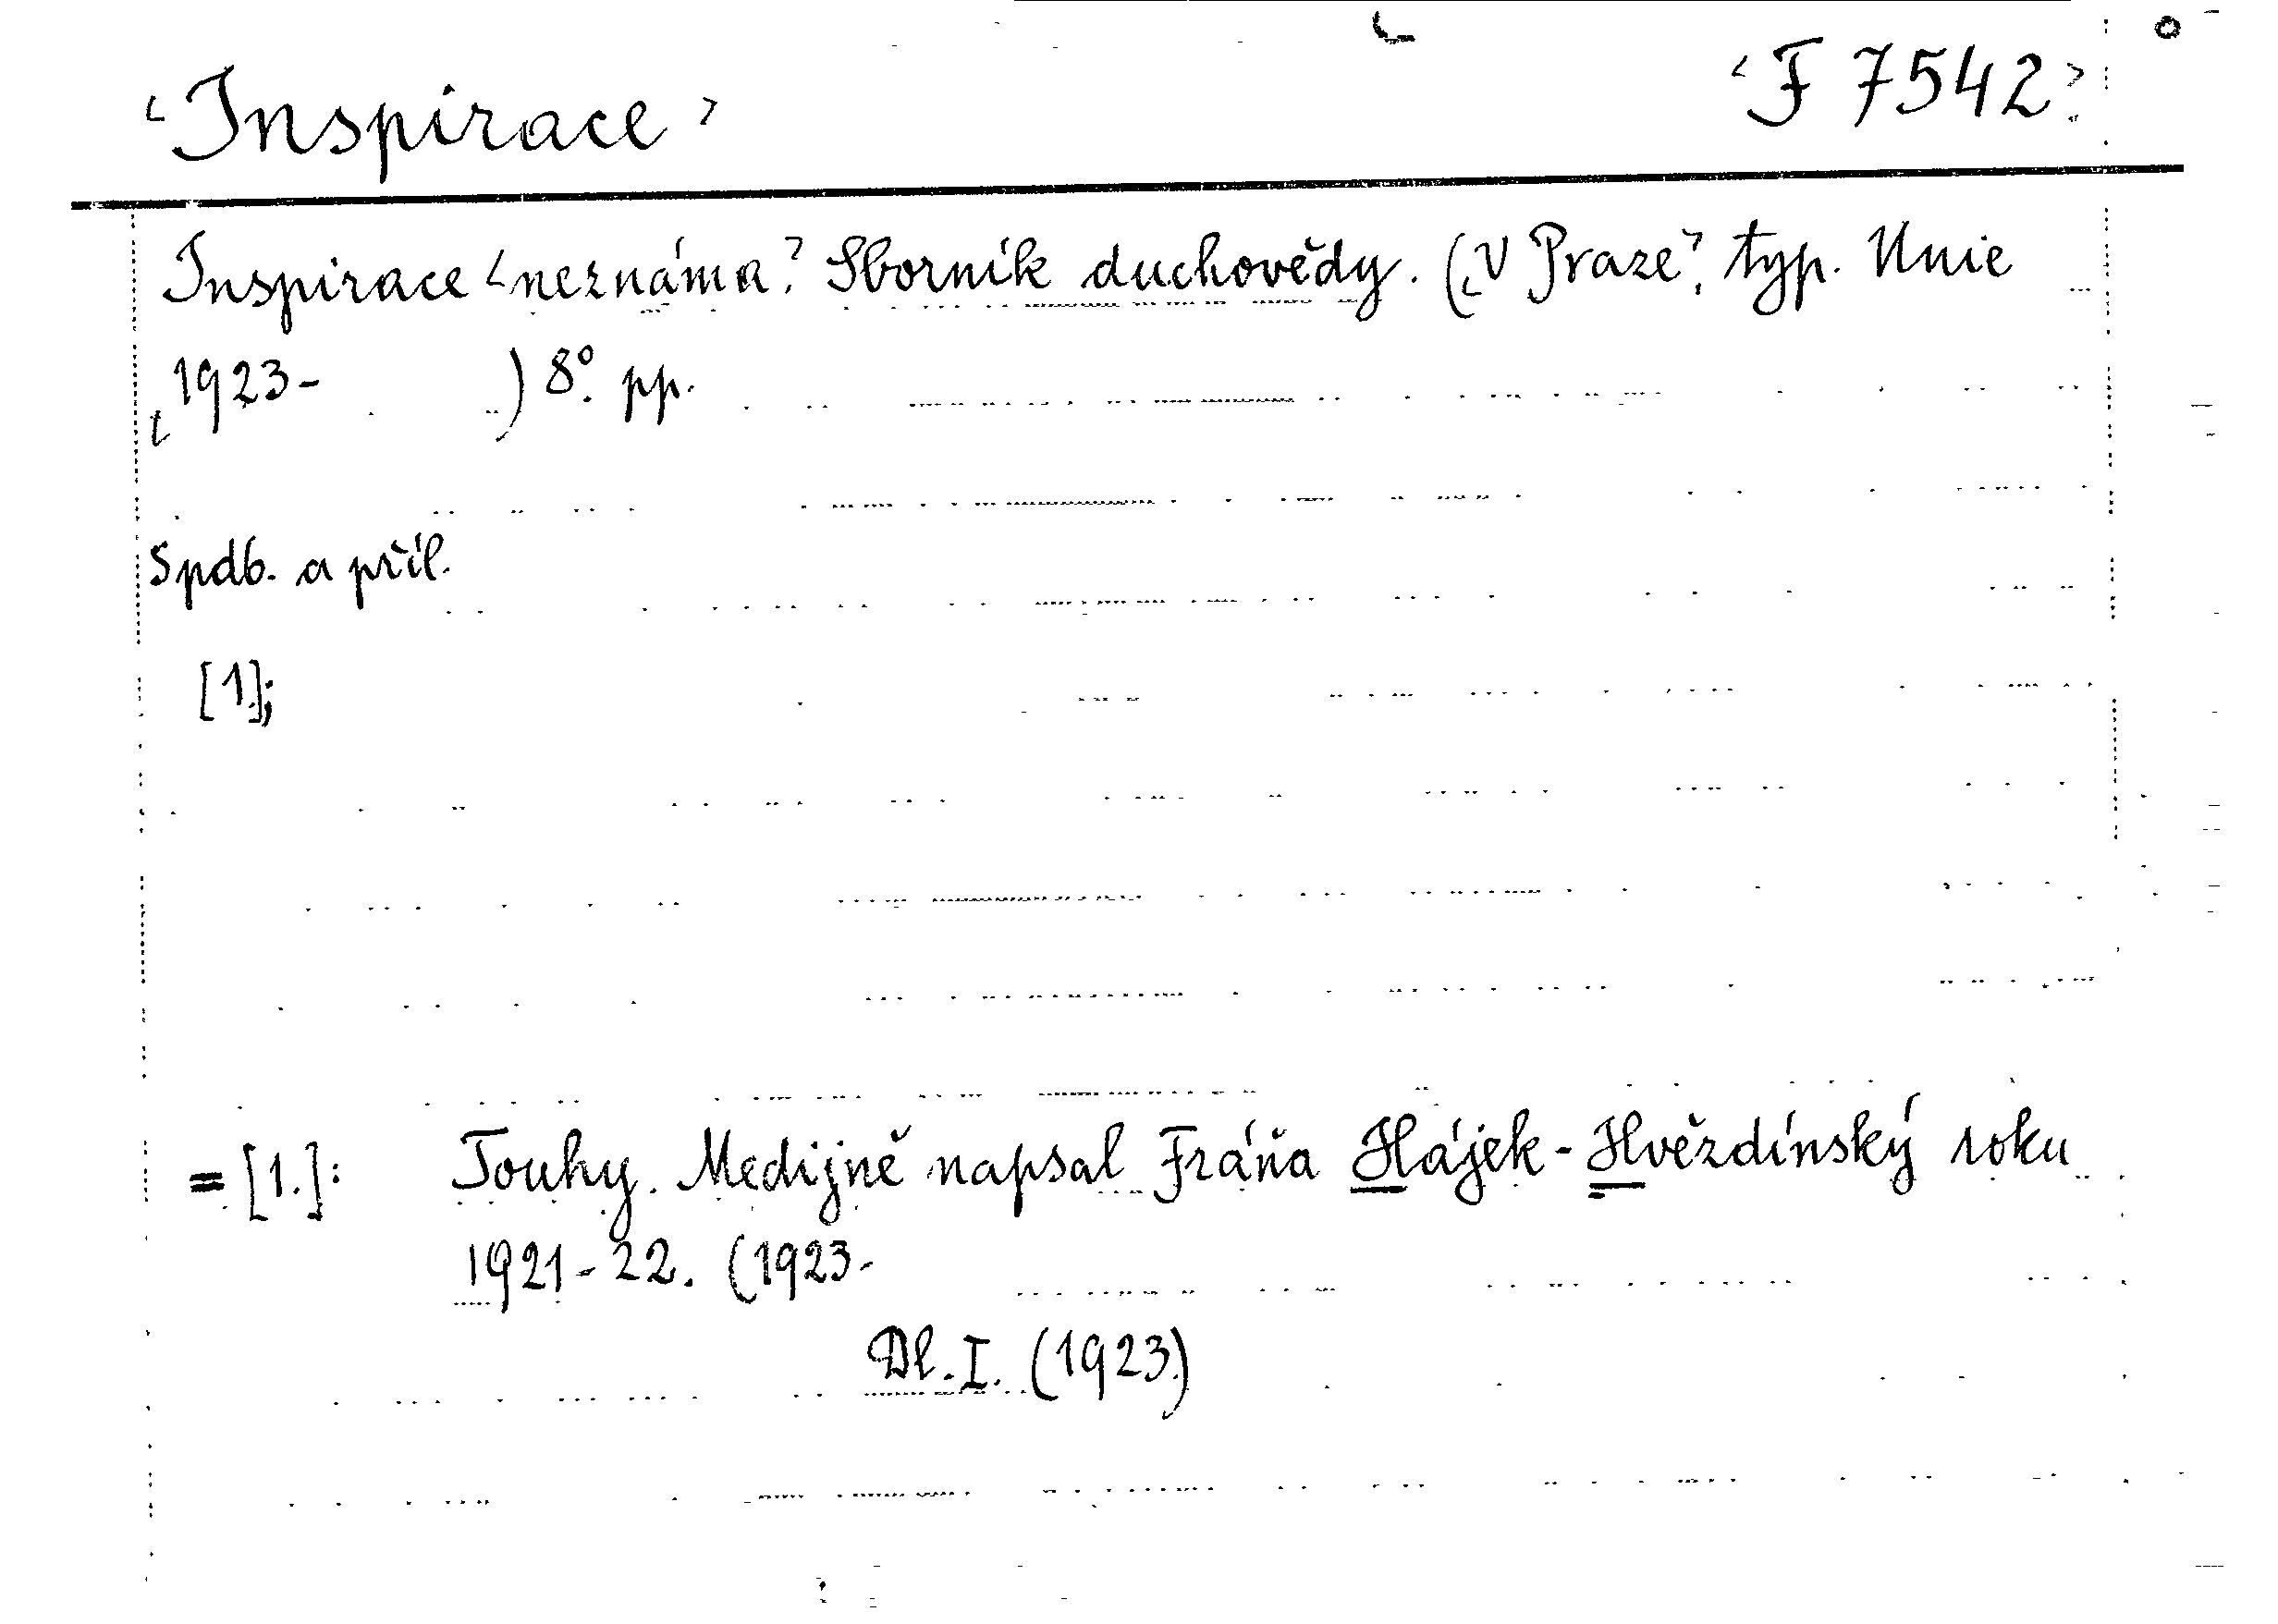 ‹Inspirace›
‹F 7542›
Inspirace ‹neznámá›. Sborník duchovědy. (‹V Praze›, typ. Unie
‹1923- ) 8°. pp.
Spdb. a příl.
[1];
= [1.]: Touhy. Medijně napsal Fráňa Hájek-Hvězdínský roku
1921-22. (1923-
Dl. I. (1923)